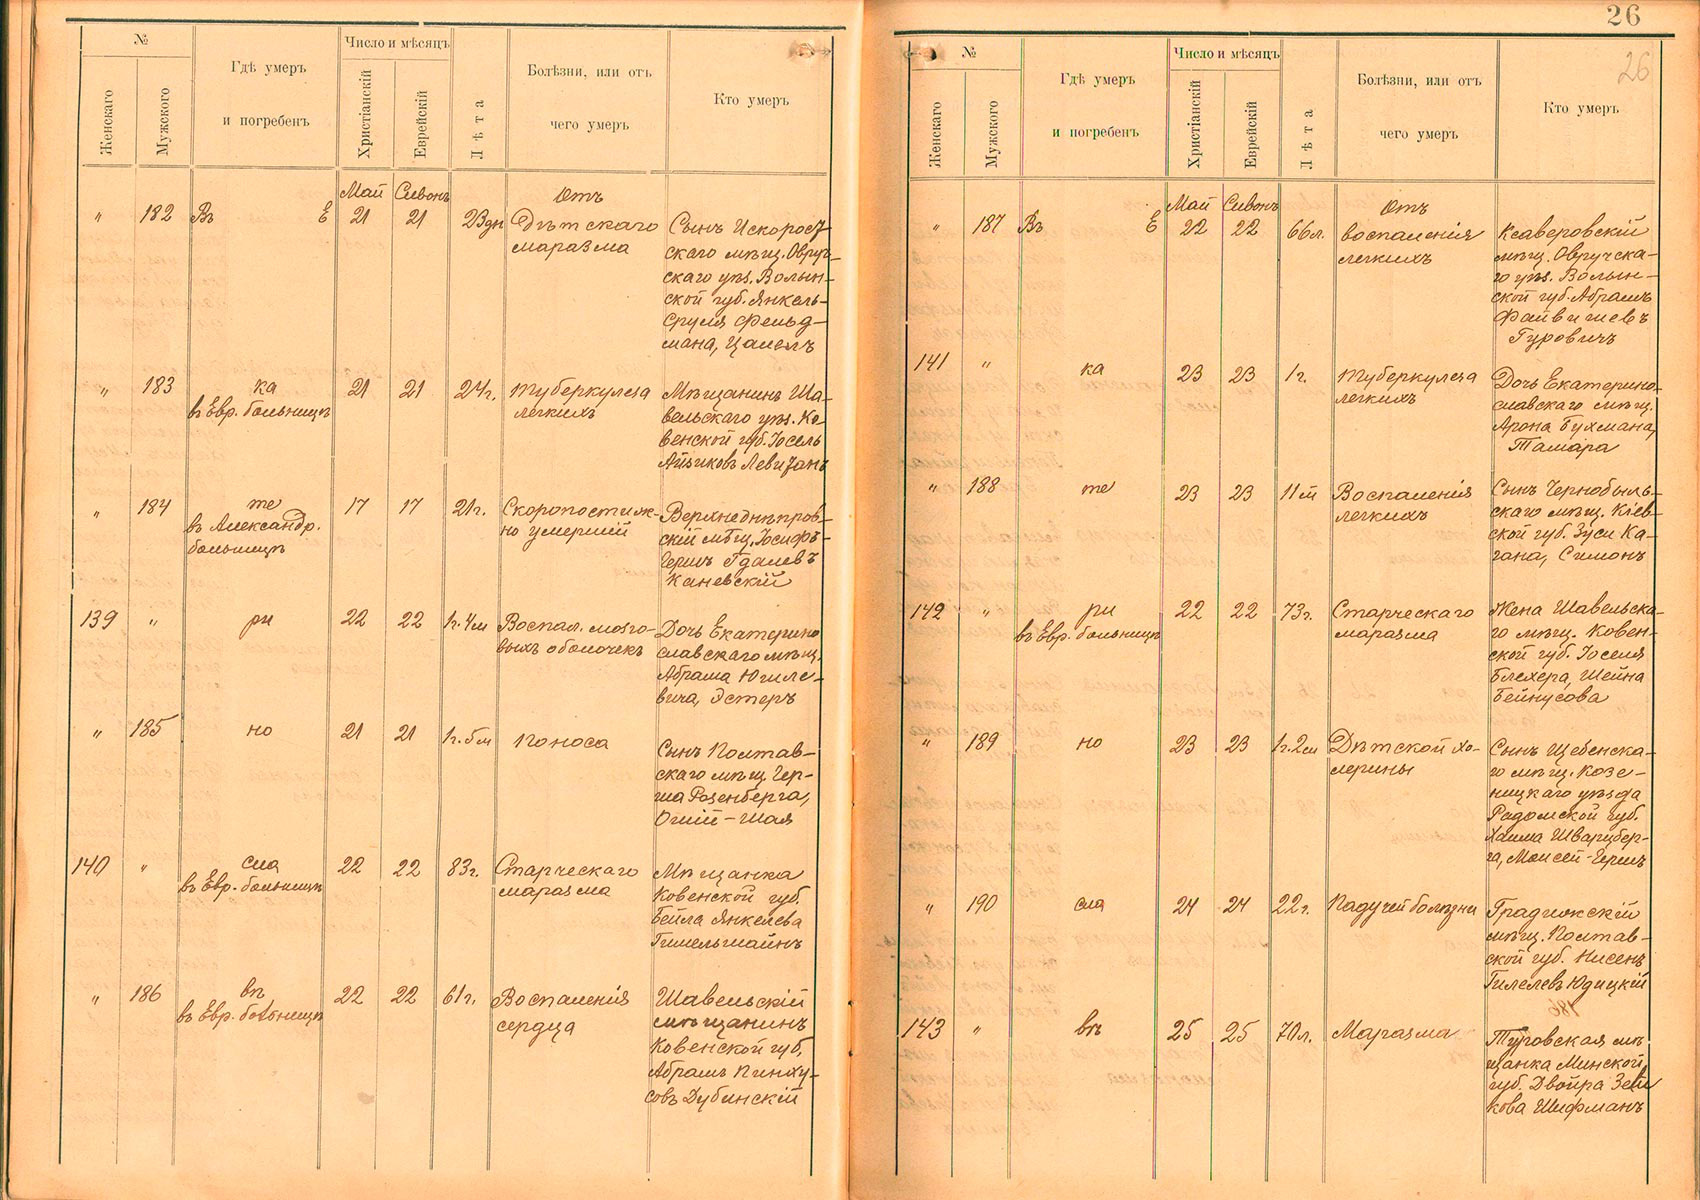 №
Число и мѣсяцъ
Женскаго
Мужского
Гдѣ умеръ
и погребенъ
Христіанскій
Еврейскій
Лѣта
Болѣзни, или отъ
чего умеръ
Кто умеръ
Май Сивонъ Отъ
" 182 Въ Е 21 21 23дн Дѣтскаго
маразма
Сынъ Искорост-
скаго мѣщ. Овруч-
скаго уѣз. Волын-
ской губ. Янкель-
Сруля Фельд-
мана,
" 183 ка 21 21 24г. Туберкулеза
въ Евр. больницѣ легкихъ
Мѣщанинъ Ша-
вельскаго уѣз. Ко-
венской губ. Іосель
Айзиковъ Левитанъ
" 184 те 17 17 21г. Скоропостиж-
въ Александр. но умершій
больницѣ
Верхнеднѣпров-
скій мѣщ. Іосифъ-
Гершъ Гдалевъ
Каневскій
139 " ри 22 22 1г.4м Воспал. мозго-
выхъ оболочекъ
Дочь Екатерино
славскаго мѣщ.
Абрама Югиле-
вича, Эстеръ
" 185 но 21 21 1г.5м Поноса
Сынъ Полтав-
скаго мѣщ. Гер-
ша Розенберга,
Огшій-Шая
140 " сла 22 22 83г. Старческаго
въ Евр. больницѣ маразма
Мѣщанка
Ковенской губ.
Бейла Янкелева
Гимельшайнъ
" 186 вѣ 22 22 61г. Воспаленія
въ Евр. больницѣ сердца
Шавельскій
мѣщанинъ
Ковенской губ.
Абрамъ Пинху-
совъ Дубинскій
26
26
№
Число и мѣсяцъ
Женскаго
Мужского
Гдѣ умеръ
и погребенъ
Христіанскій
Еврейскій
Лѣта
Болѣзни, или отъ
чего умеръ
Кто умеръ
Май Сивонъ Отъ
" 187 Въ Е 22 22 66л. воспаленія
легкихъ
Ксаверовскій
мѣщ. Овручска-
го уѣз. Волын-
ской губ. Абрамъ
Файвишевъ
Гуровичъ
141 " ка 23 23 1г. Туберкулеза
легкихъ
Дочь Екатерино-
славскаго мѣщ.
Арона Бухмана,
Тамара
" 188 те 23 23 11м Воспаленія
легкихъ
Сынъ Чернобыль-
скаго мѣщ. Кіев-
ской губ. Зуси Ка-
гана, Симонъ
142 " ри 22 22 73г. Старческаго
въ Евр. больницѣ маразма
Жена Шавельска-
го мѣщ. Ковен-
ской губ. Іоселя
Блехера, Шейна
Бейнусова
" 189 но 23 23 1г.2м Дѣтской хо-
лерины
Сынъ Щебенска-
го мѣщ. Козе-
ницкаго уѣзда
Радомской губ.
Хаима Шварцбер-
га, Моисей-Гершъ
" 190 сла 24 24 22г. Падучей болѣзни
Градижскій
мѣщ. Полтав-
ской губ. Нисенъ
Гилелевъ Юдицкій
143 " вѣ 25 25 70л. Маразма
Туровская мѣ
щанка Минской
губ. Двойра Зели
кова Шифманъ